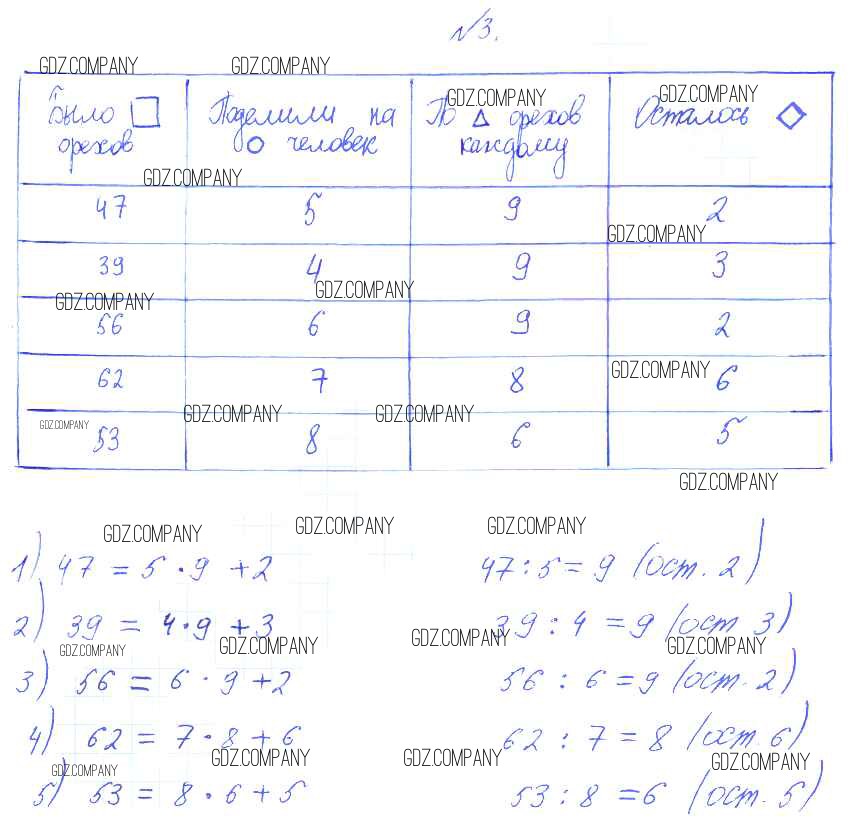 №3.
GDZ.COMPANY GDZ.COMPANY
Было □ орехов
Поделили на ○ человек
По △ орехов каждому
Осталось ◇
GDZ.COMPANY GDZ.COMPANY
GDZ.COMPANY
47 5 9 2
GDZ.COMPANY
39 4 9 3
GDZ.COMPANY GDZ.COMPANY
56 6 9 2
62 7 8 6
GDZ.COMPANY
GDZ.COMPANY GDZ.COMPANY GDZ.COMPANY
53 8 6 5
GDZ.COMPANY
GDZ.COMPANY GDZ.COMPANY GDZ.COMPANY
1) 47 = 5 · 9 + 2 47 : 5 = 9 (ост. 2)
2) 39 = 4 · 9 + 3 39 : 4 = 9 (ост 3)
GDZ.COMPANY GDZ.COMPANY GDZ.COMPANY GDZ.COMPANY
3) 56 = 6 · 9 + 2 56 : 6 = 9 (ост. 2)
4) 62 = 7 · 8 + 6 62 : 7 = 8 (ост. 6)
GDZ.COMPANY GDZ.COMPANY GDZ.COMPANY GDZ.COMPANY
5) 53 = 8 · 6 + 5 53 : 8 = 6 (ост. 5)